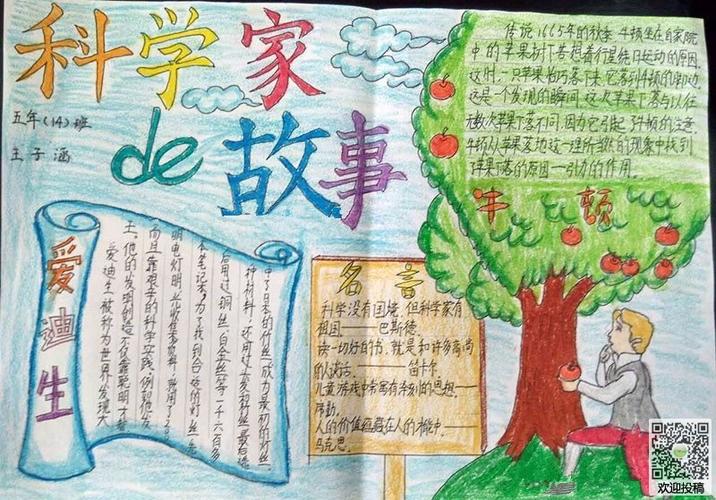 科学家
de 故事
五年(14)班
王子涵
传说1665年的秋季,牛顿坐在自家院
中的苹果树下苦想着行星绕日运动的原因。
这时,一只苹果恰巧落下来,它落到牛顿的脚边。
这是一个发现的瞬间,这次苹果下落与以往
无数次苹果下落不同,因为它引起了牛顿的注意。
牛顿从苹果落地这一理所当然的现象中找到
了苹果下落的原因—引力的作用。
牛顿
爱迪生
爱迪生被称为世界发明大
王。他的发明创造不仅靠聪明才智
而且靠艰辛的科学实践。例如他发
明电灯时收集资料,就用了200
本笔记本,为了找到合适的灯丝,先
后用过铜丝、白金丝等一千六百多
种材料,还用过头发和丝最后选
中了日本的竹丝成为最初的灯丝。
名言
科学没有国境,但科学家有
祖国——巴斯德。
读一切好的书,就是和许多高尚
的人谈话。——笛卡尔。
儿童游戏中常寓有深刻的思想—
席勒。
人的价值蕴藏在人的才能中。——
马克思。
欢迎投稿